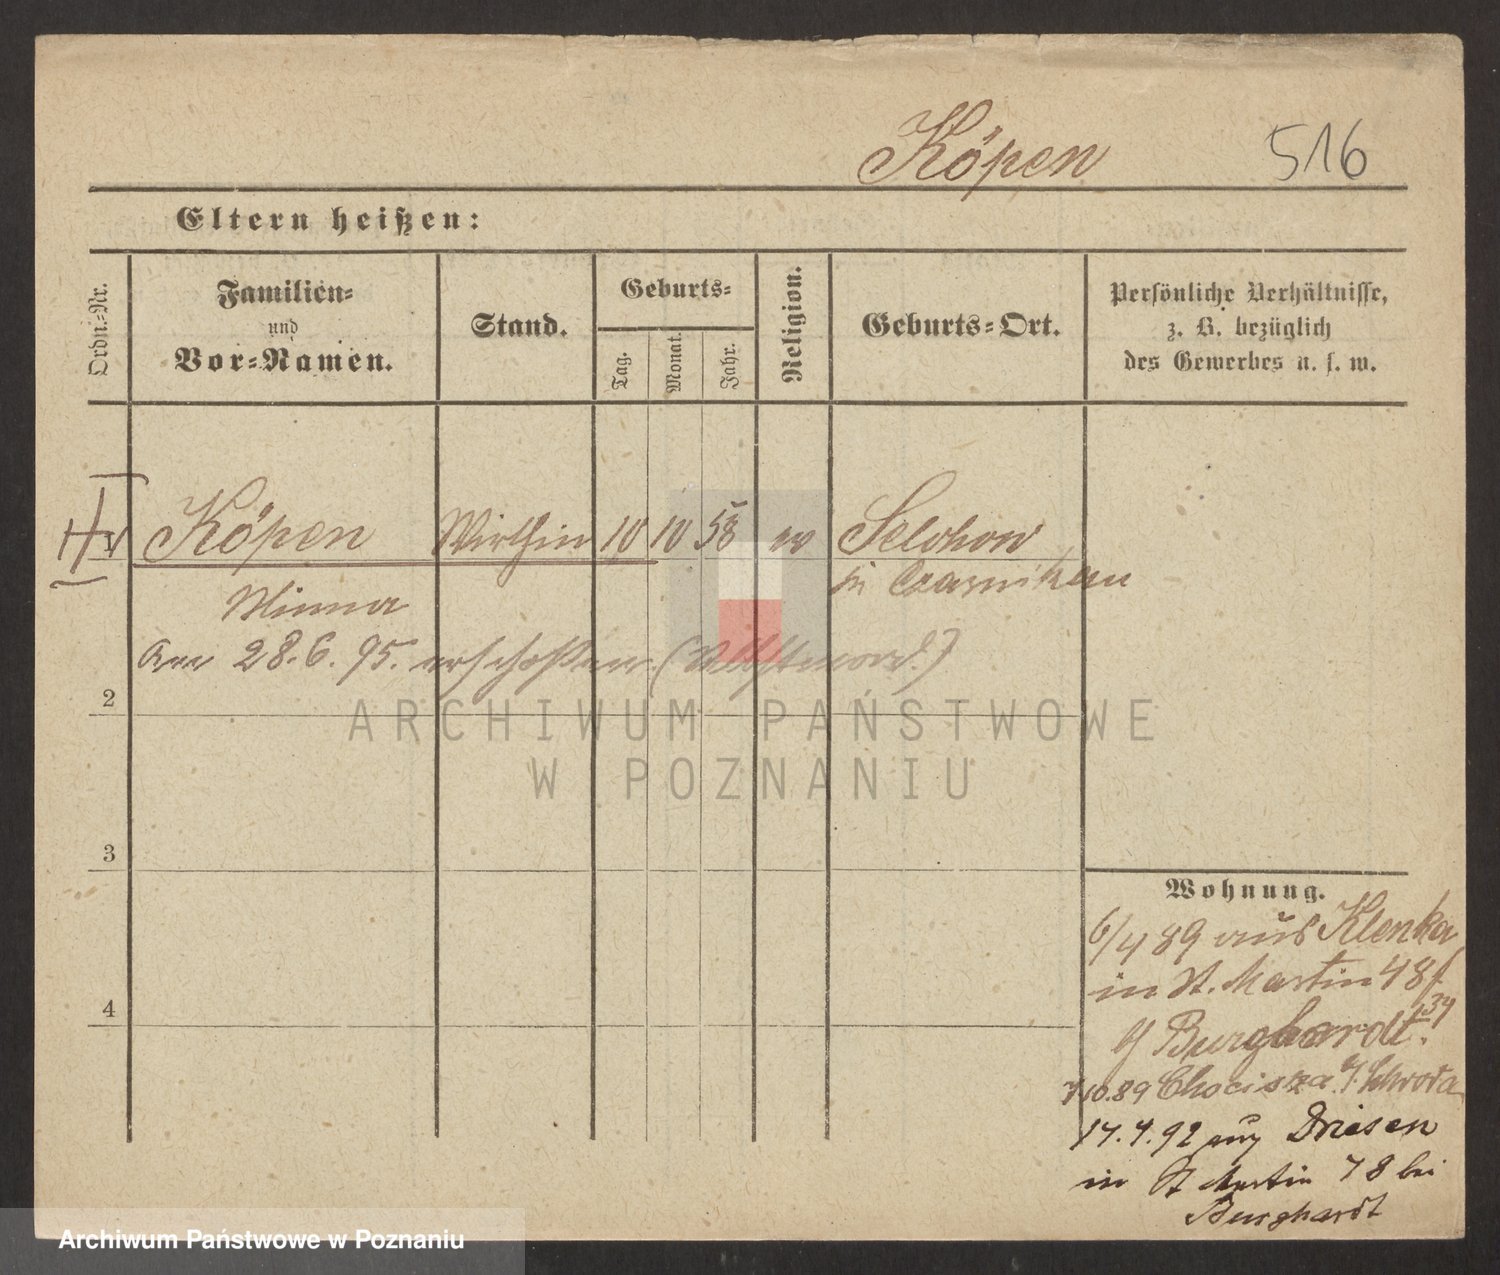 Köpen 516
Eltern heißen:
Ordn.-Nr.
Familien-
und
Vor-Namen.
Stand.
Geburts-
Tag.
Monat.
Jahr.
Religion.
Geburts-Ort.
Persönliche Verhältnisse,
z. B. bezüglich
des Gewerbes u. s. w.
Köpen Wirthin 10 10 58 ev Selchow
in Czarnikau
Minna
Am 28.6.95. erschoßen (Selbstmord.)
2
3
4
Wohnung.
6/4 89 aus Klenka
in St. Martin 48
Burghardt.
10.89 Chocisza Schroda
17.4.92 aus Driesen
in St Martin 78 bei
Burghardt
ARCHIWUM PAŃSTWOWE
W POZNANIU
Archiwum Państwowe w Poznaniu